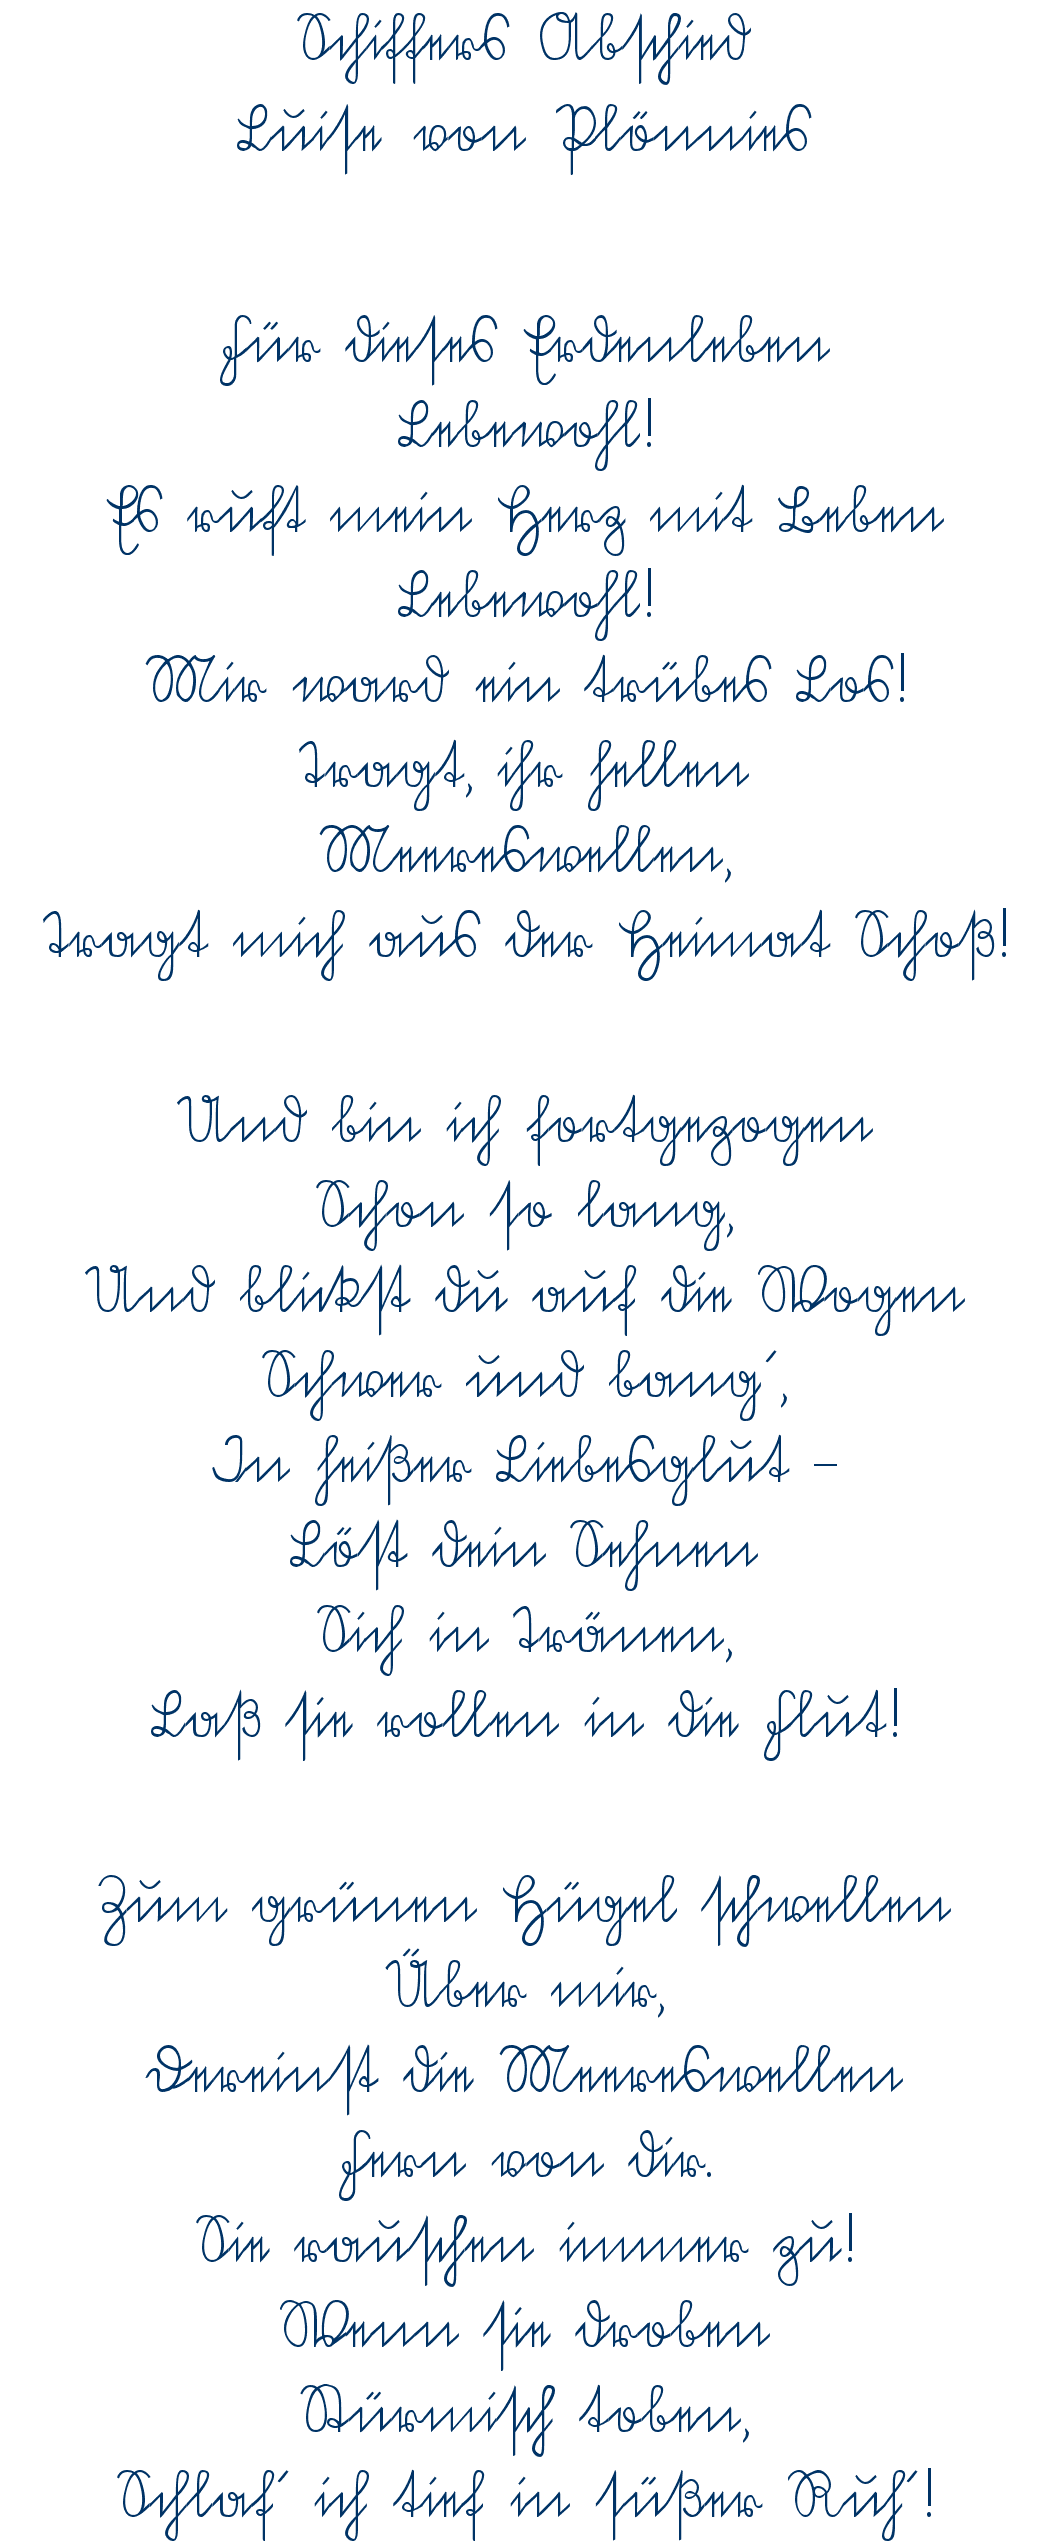 Schiffers Abschied
Luise von Plönnies
Für dieses Erdenleben
Lebewohl!
Es ruft mein Herz mit Beben
Lebewohl!
Mir ward ein trübes Los!
Tragt, ihr hellen
Meereswellen,
Tragt mich aus der Heimat Schoß!
Und bin ich fortgezogen
Schon so lang,
Und blickst du auf die Wogen
Schwer und bang´,
In heißer Liebesglut –
Löst dein Sehnen
Sich in Tränen,
Laß sie rollen in die Flut!
Zum grünen Hügel schwellen
Über mir,
Dereinst die Meereswellen
Fern von dir.
Sie rauschen immer zu!
Wenn sie droben
Stürmisch toben,
Schlaf´ ich tief in süßer Ruh´!